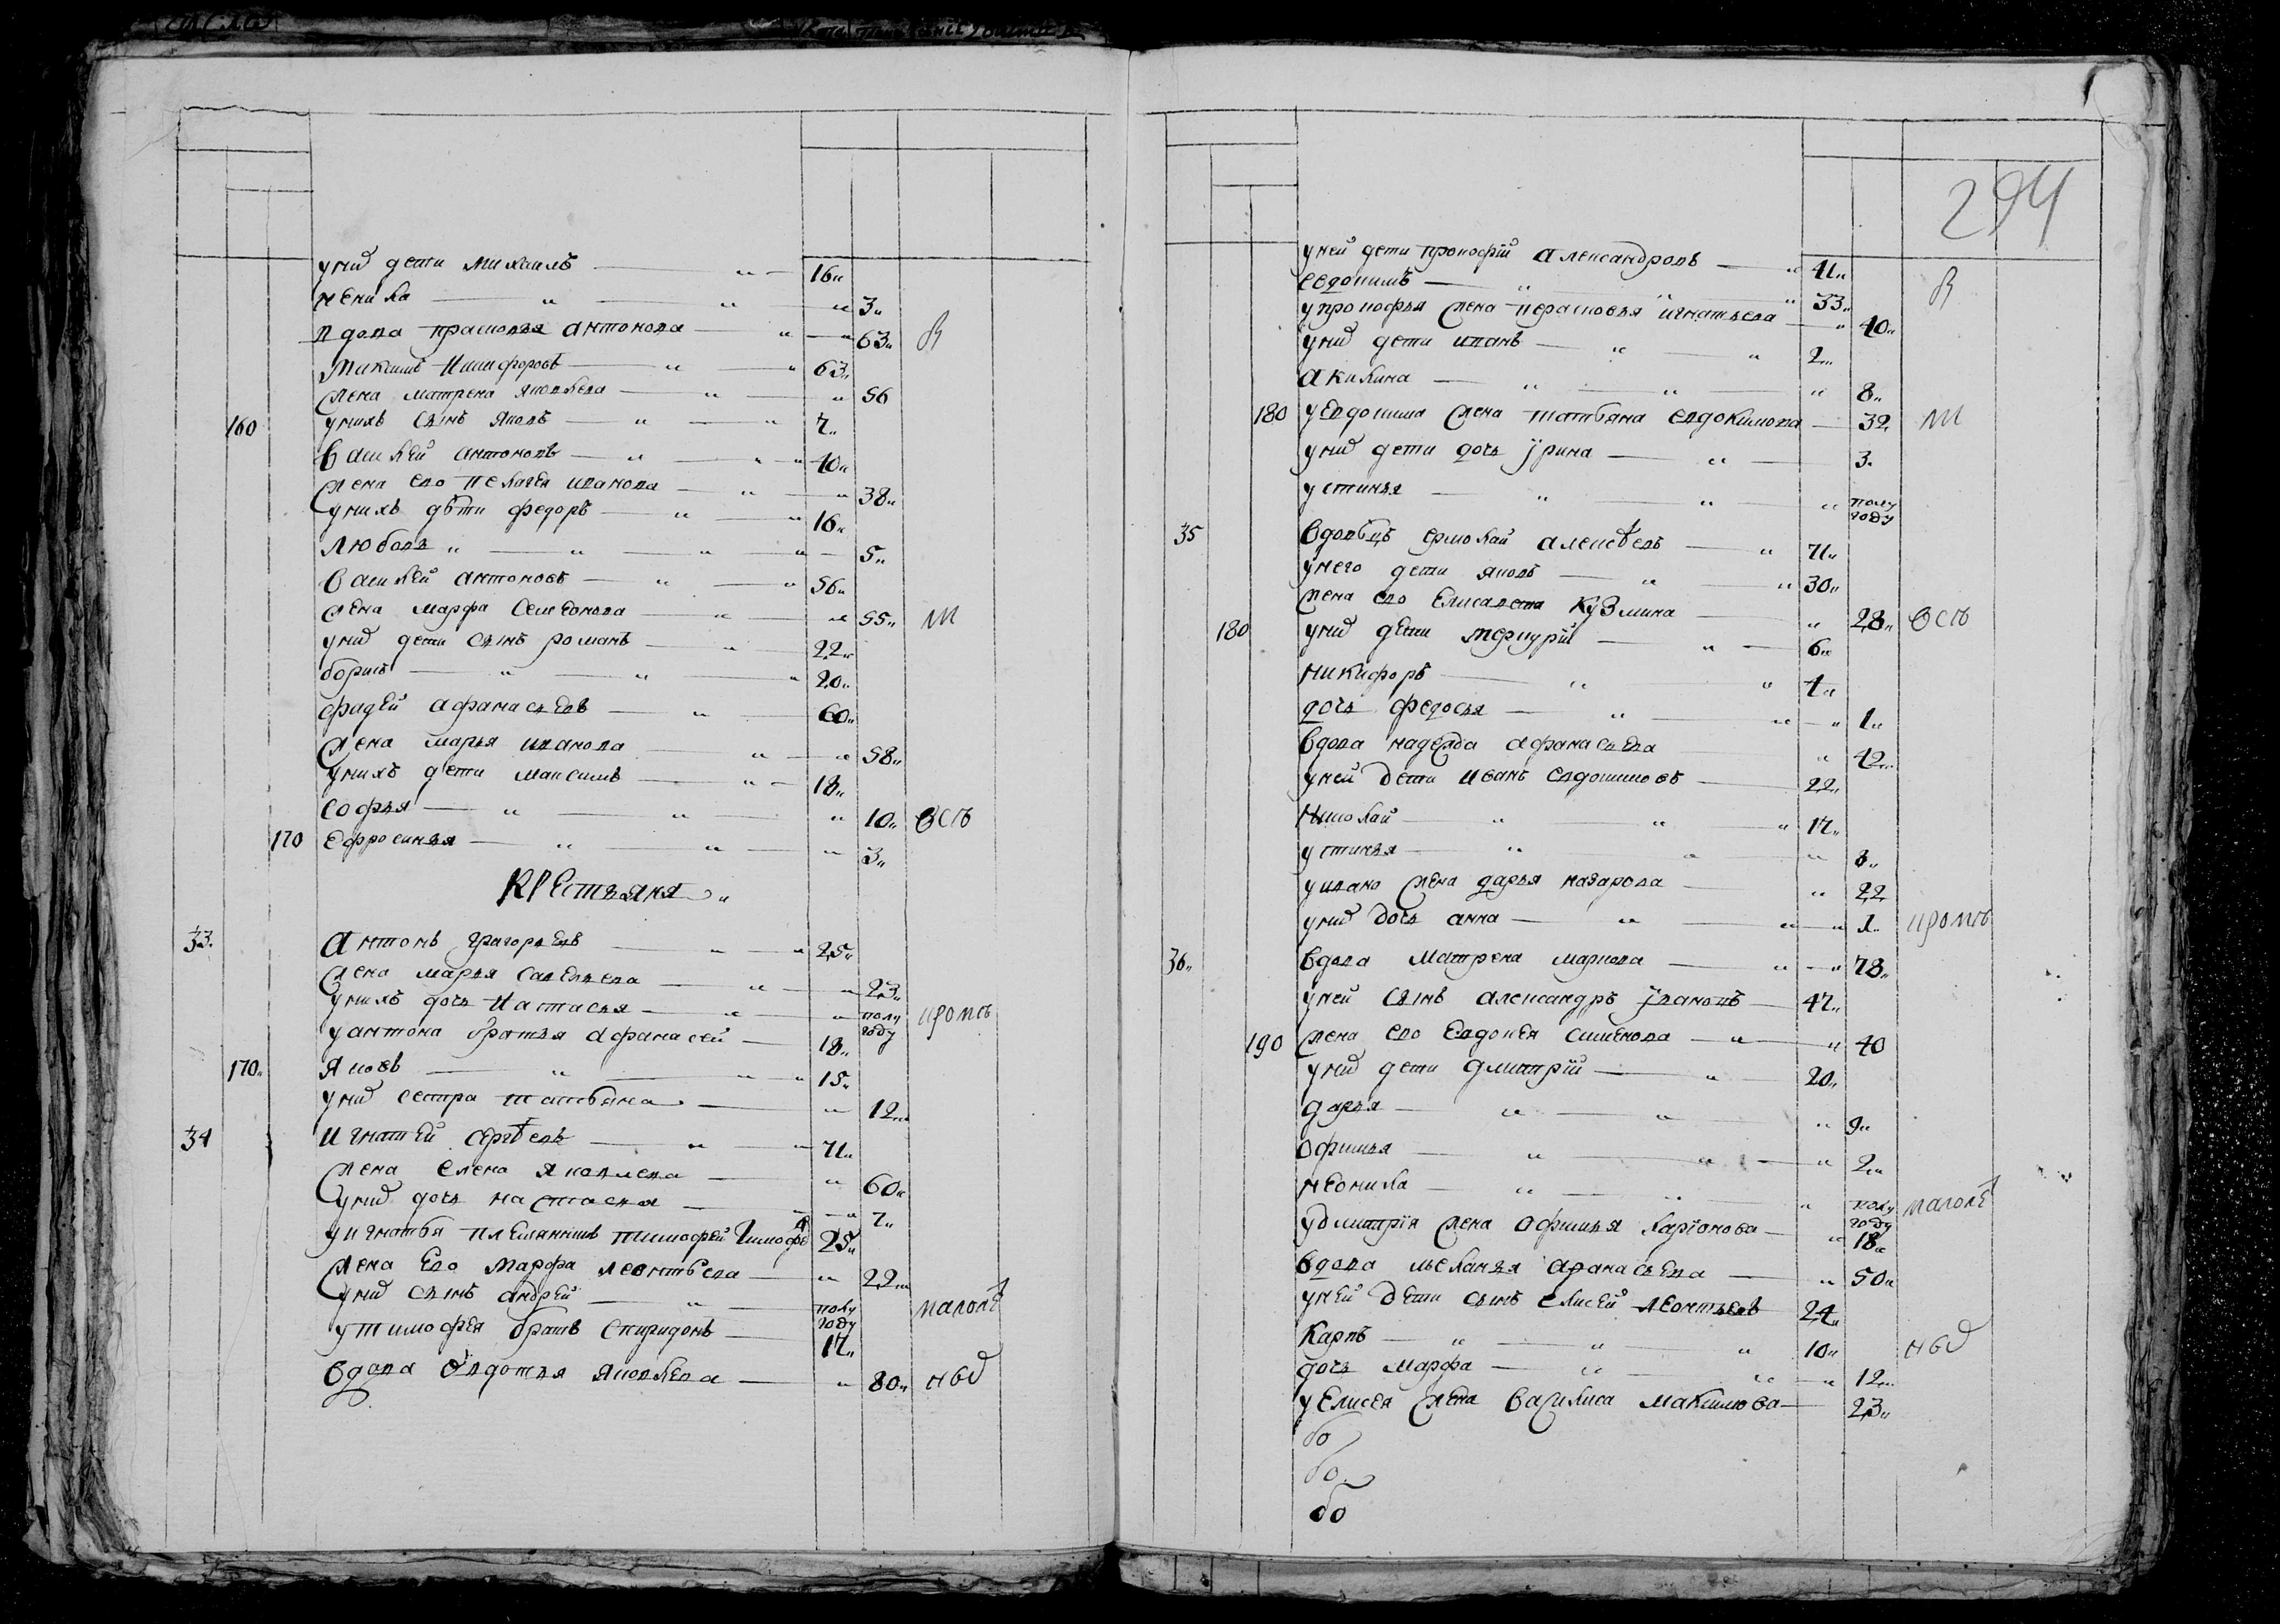 у них дети Михаилъ 16
неонила 3
вдова прасковья антонова 63
Никита Никифоровъ 63
жена матрена яковлева 56
160 у них сынъ яковъ 7
василей антоновъ 40
жена ево пелагея иванова 38
у нихъ дѣти федоръ 16
любовь 5
василей антоновъ 56
жена марфа семенова 55
у них дети сынъ романъ 22
борисъ 20
фадей афанасьевъ 60
жена марья иванова 58
у нихъ дети максимъ 18
софья 10
170 ефросинья 3
Крестьяня
33 Антонъ григорьевъ 25
жена марья савельева 23
у нихъ дочь настасья полу году
у антона братья афанасей 18
170 яковъ 15
у них сестра татьяна 12
34 игнатей сергѣевъ 71
жена елена яковлева 60
у них дочь настасья 7
у игнатья племянникъ тимофей тимофѣ 25
жена ево марфа леонтьева 22
у них сынъ андрей полу году
у тимофея братъ спиридонъ 17
вдова овдотья яковлева 80
294
у ней дети прокофий александровъ 41
евдокимъ 33
у прокофья жена парасковья игнатьева 40
у них дети иванъ 2
акилина 8
180 у евдокима жена татьяна евдокимова 32
у них дети дочь ирина 3
устинья полу году
35 вдовецъ ермолай алексѣевъ 71
у него дети яковъ 30
жена ево елисавета кузмина 28
180 у них дети меркурий 6
никифоръ 4
дочь федосья 1
вдова надежда афанасьева 42
у ней дети иванъ евдокимовъ 22
николай 17
устинья 8
у ивана жена дарья назарова 22
у них дочь анна 1
36 вдова матрена маркова 78
у ней сынъ александръ ивановъ 47
190 жена ево евдокея симонова 40
у них дети дмитрий 20
дарья 9
офимья 2
неонила полу году
у дмитрия жена офимья ларионова 18
вдова меланья афанасьева 50
у ней дети сынъ елисей леонтьевъ 24
карпъ 10
дочь марфа 12
у елисея жена василиса максимова 23